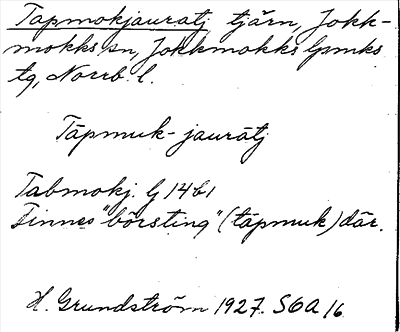 Tapmokjauratj tjärn, Jokk-
mokks sn, Jokkmokks lpmks
tg, Norrb. l.
Tāpmuk-jaurātj
Tabmokj. G 14 b 1
Finnes "börsting" (tāpmuk) där.
H. Grundström 1927. SOA 16.